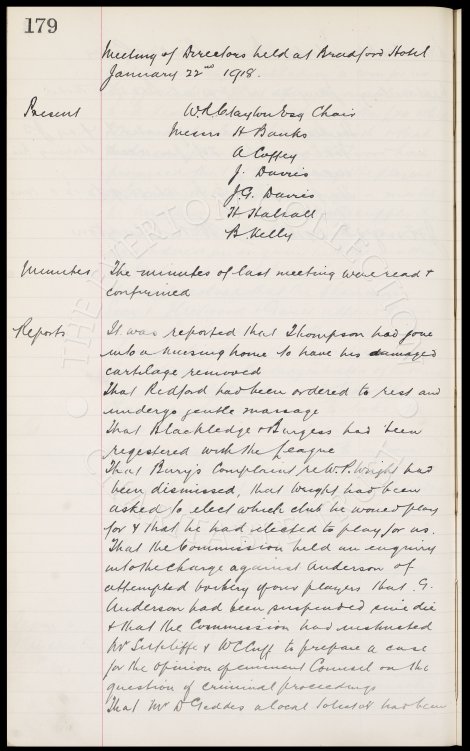 179
Meeting of Directors held at Bradford Hotel
January 22nd 1918.
Present W.R. Clayton Esq Chair
Messrs H Banks
A Coffey
J. Davies
J.G. Davies
H Halsall
B. Kelly
Minutes The minutes of last meeting were read &
confirmed
Reports It was reported that Thompson had gone
into a nursing home to have his damaged
cartilage removed
That Redford had been ordered to rest and
undergo gentle massage
That Blackledge & Burgess had been
registered with the League
That Bury's Complaint re W.P. Wright had
been dismissed, that Wright had been
asked to elect which club he would play
for & that he had elected to play for us.
That the Commission held an enquiry
into the charge against Anderson of
attempted bribery of our players that G.
Anderson had been suspended sine die
& that the Commission had instructed
Mr Sutcliffe & W C Cuff to prepare a case
for the opinion of eminent Counsel on the
question of criminal proceedings
That Mr D Geddes a local had been
THE EVERTON COLLECTION